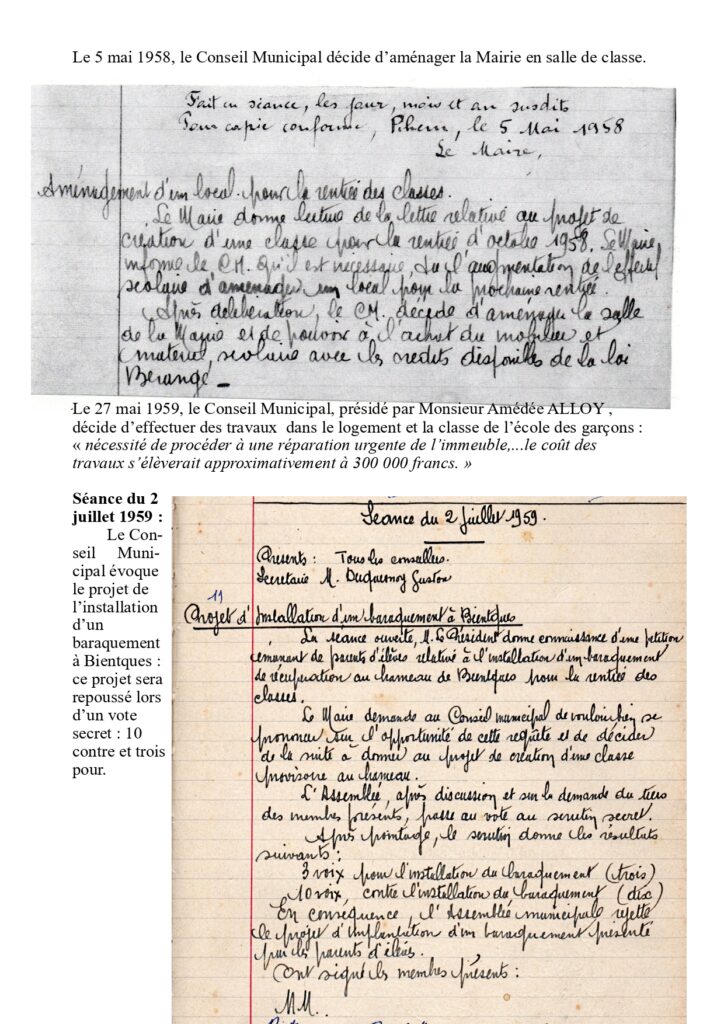 Le 5 mai 1958, le Conseil Municipal décide d’aménager la Mairie en salle de classe.
Fait en séance, les jour, mois et an susdits
Pour copie conforme, Pihem, le 5 Mai 1958
Le Maire,
Aménagement d'un local pour la rentrée des classes.
Le Maire donne lecture de la lettre relative au projet de
création d'une classe pour la rentrée d'octobre 1958. Le Maire
informe le CM. qu'il est nécessaire, vu l'augmentation de l'effectif
scolaire d'aménager un local pour la prochaine rentrée.
Après délibération, le CM. décide d'aménager la salle
de la Mairie et de pouvoir à l'achat du mobilier et
matériel scolaire avec les crédits disponibles de la loi
Barangé
Le 27 mai 1959, le Conseil Municipal, présidé par Monsieur Amédée ALLOY ,
décide d’effectuer des travaux dans le logement et la classe de l’école des garçons :
« nécessité de procéder à une réparation urgente de l’immeuble,...le coût des
travaux s’élèverait approximativement à 300 000 francs. »
Séance du 2
juillet 1959 :
Le Con-
seil Muni-
cipal évoque
le projet de
l’installation
d’un
baraquement
à Bientques :
ce projet sera
repoussé lors
d’un vote
secret : 10
contre et trois
pour.
Séance du 2 Juillet 1959.
Présents : Tous les conseillers.
Secrétaire M. Duquesnoy Gaston
11
Projet d'Installation d'un baraquement à Bientques
La séance ouverte, M. le Président donne connaissance d'une pétition
émanant de parents d'élèves relative à l'installation d'un baraquement
de récupération au hameau de Bientques pour la rentrée des
classes.
Le Maire demande au Conseil municipal de vouloir bien se
prononcer sur l'opportunité de cette requête et de décider
de la suite à donner au projet de création d'une classe
provisoire au hameau.
L'Assemblée, après discussion et sur la demande du tiers
des membres présents, passe au vote au scrutin secret.
Après pointage, le scrutin donne les résultats
suivants :
3 voix pour l'installation du baraquement (trois)
10 voix, contre l'installation du baraquement (dix)
En conséquence, l'Assemblée municipale rejette
le projet d'implantation d'un baraquement présenté
par les parents d'élèves.
Ont signé les membres présents :
MM.